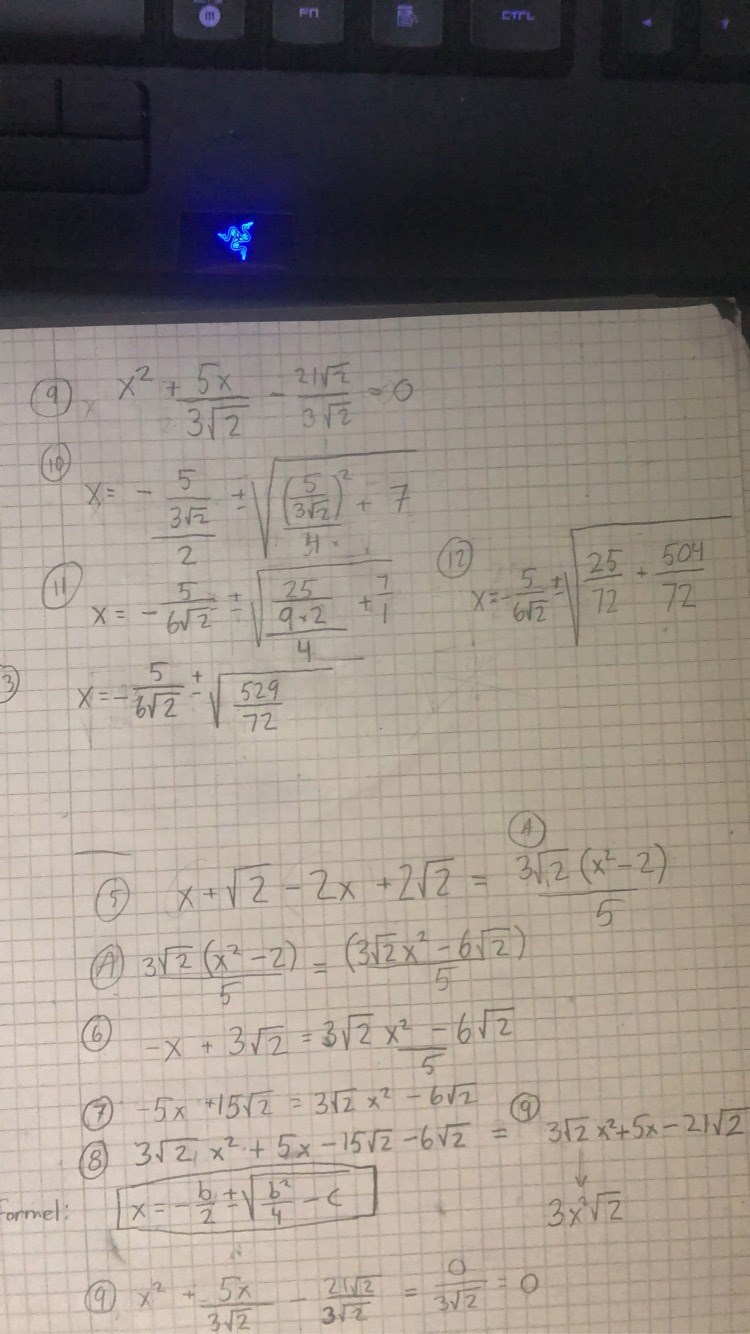 FN
CTRL
⑨ x² + 5x/3√2 - 21√2/3√2 = 0
⑩ x = - (5/3√2)/2 ± √((5/3√2)²/4 + 7)
⑪ x = - 5/6√2 ± √((25/9·2)/4 + 7/1)
⑫ x = - 5/6√2 ± √(25/72 + 504/72)
3 x = - 5/6√2 ± √(529/72)
⑤ x + √2 - 2x + 2√2 = Ⓐ 3√2(x²-2)/5
Ⓐ 3√2(x²-2)/5 = (3√2x² - 6√2)/5
⑥ -x + 3√2 = 3√2x² - 6√2/5
⑦ -5x + 15√2 = 3√2x² - 6√2
⑧ 3√2x² + 5x - 15√2 - 6√2 = ⑨ 3√2x² + 5x - 21√2
3x²√2
formel: x = - b/2 ± √(b²/4 - c)
⑨ x² + 5x/3√2 - 21√2/3√2 = 0/3√2 = 0